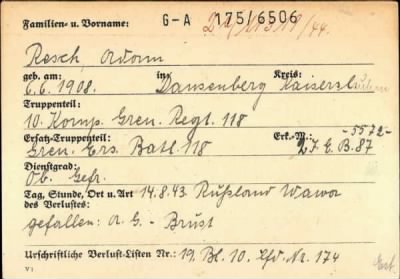 Familien- u. Vorname: G-A 175/6506
Resch, Adam
geb. am: in: Kreis:
6.6.1908. Dansenberg Kaiserslautern
Truppenteil:
10. Komp. Gren. Regt. 118
Ersatz-Truppenteil: Erk.-M.: -5572-
Gren. Ers. Batl. 118 2.J.E.B.87
Dienstgrad:
Ob. Gefr.
Tag, Stunde, Ort u. Art 14.8.43 Rußland Wawa
des Verlustes:
gefallen: A.G. - Brust
Urschriftliche Verlust-Listen Nr.: 19. Bl. 10. Lfd. Nr. 174
V1